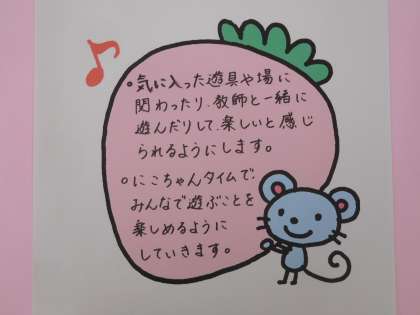 ○気に入った遊具や場に
関わったり、教師と一緒に
遊んだりして、楽しいと感じ
られるようにします。
○にこちゃんタイムで、
みんなで遊ぶことを
楽しめるように
していきます。